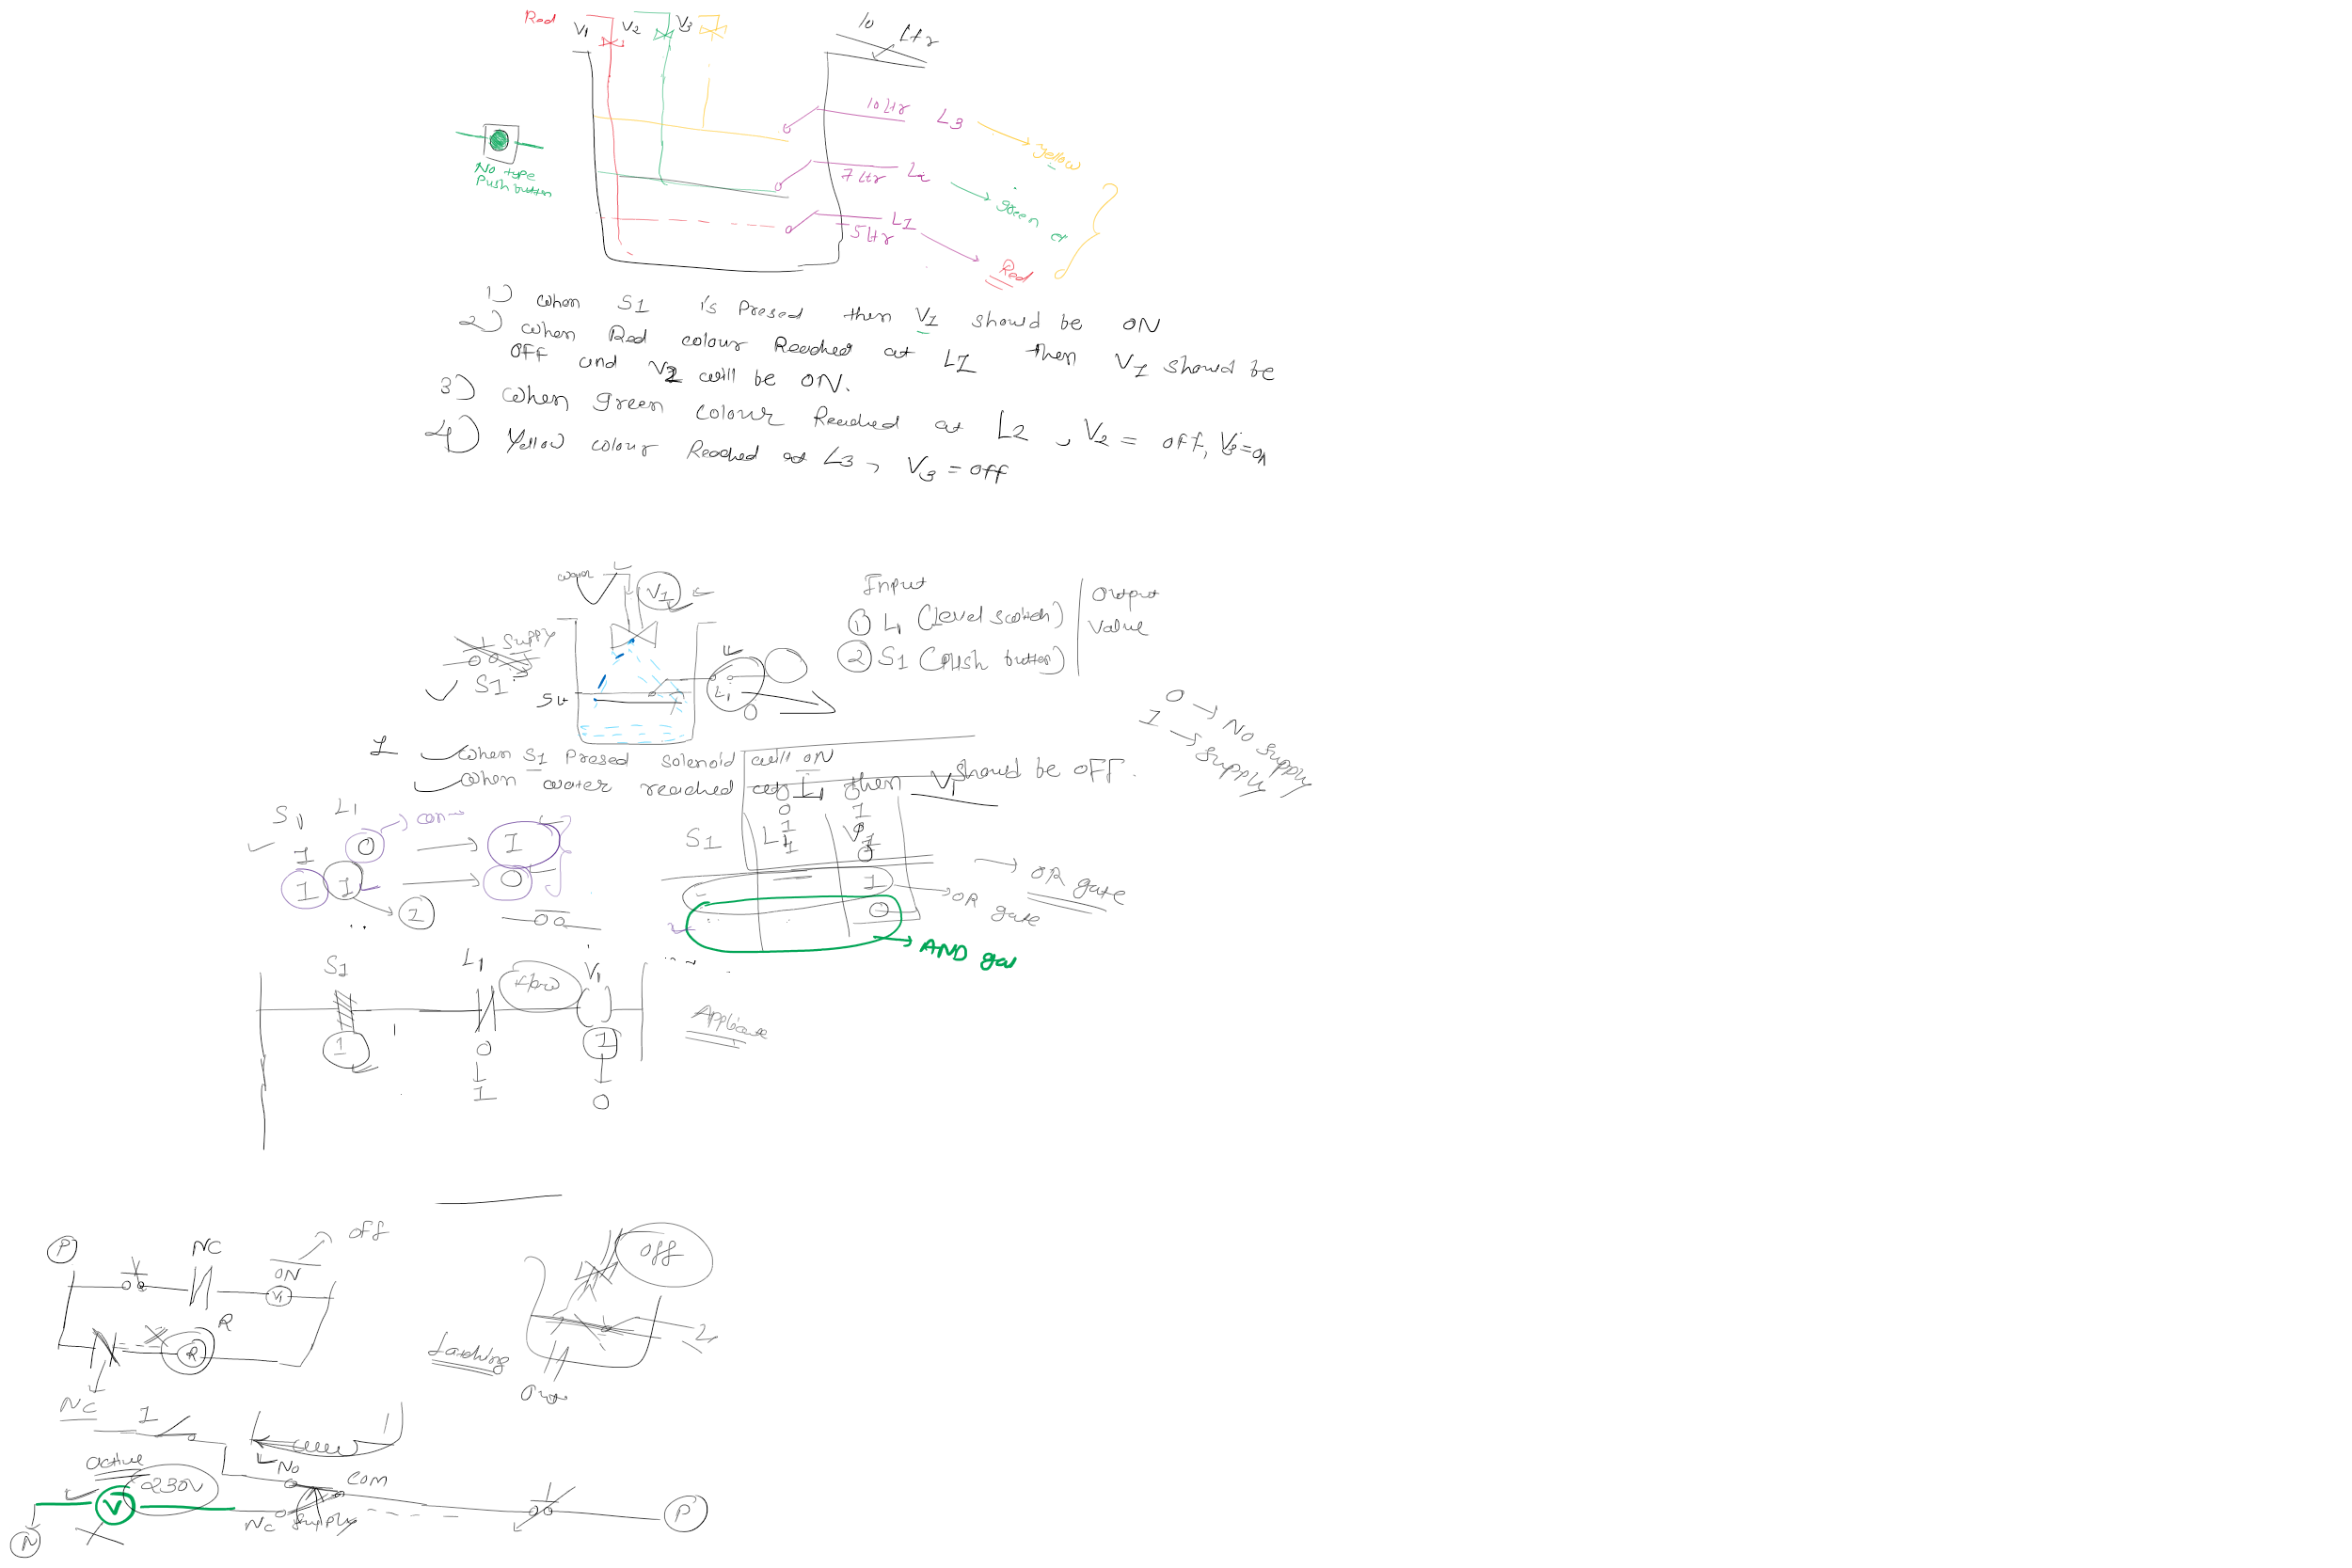 Red V1 V2 V3 10 Ltr
10 Ltr L3
Yellow
7 Ltr L2
green
L1
5 Ltr
Red
No type
Push button
1) when S1 is Presed then V1 should be ON
2) when Red colour Reached at L1 then V1 should be
off and V2 will be ON.
3) when green colour Reached at L2, V2 = off, V3=on
4) Yellow colour Reached at L3, V3 = off
V1
Supply
S1
L1
Input
① L1 (level switch)
② S1 (push button)
Output
Value
0 → No supply
1 → supply
when S1 Presed solenoid will ON
when water reached at L1 then V1 should be OFF.
S1 L1
1 0 → 1
1 1 → 0
1
S1 L1 V1
0 1
1
1 0
1 → OR gate
→ OR gate
0
→ AND
S1 L1 V1
1 0 1
1 0
P NC ON off
V1
R
R
NC
off
Latching
1
active
No
Com
V 230V
NC Supply
P
N